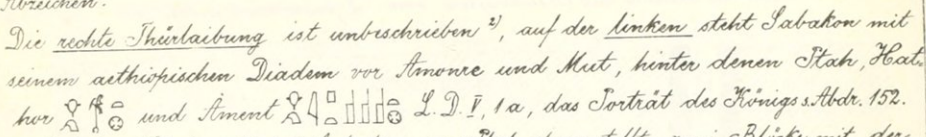 Abzeichen.
Die rechte Thürlaibung ist unbeschrieben ²⁾, auf der linken steht Sabakon mit
seinem aethiopischen Diadem vor Amonre und Mut, hinter denen Ptah, Hat-
hor und Ȧment L.D. V, 1a, das Porträt des Königs s. Abdr. 152.
Blöcke mit der